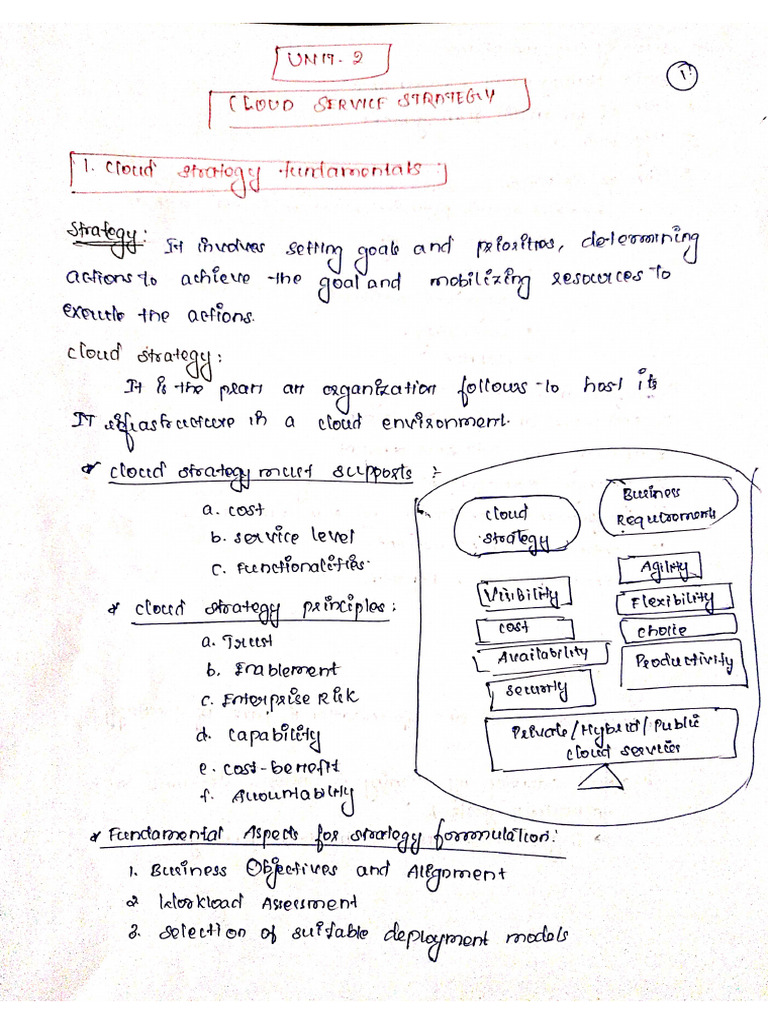 UNIT-2
1.
CLOUD SERVICE STRATEGY
1. Cloud strategy fundamentals:
Strategy: It involves setting goals and priorities, determining
actions to achieve the goal and mobilizing resources to
execute the actions.
Cloud strategy:
It is the plan an organization follows to host its
IT infrastructure in a cloud environment.
* Cloud strategy must supports :-
a. Cost
b. Service level
c. Functionalities.
* Cloud strategy principles:
a. Trust
b. Enablement
c. Enterprise Risk
d. Capability
e. Cost-benefit
f. Accountability
Cloud
Strategy
Business
Requirements
Visibility
Cost
Availability
Security
Agility
Flexibility
Choice
Productivity
Private/Hybrid/Public
Cloud services
* Fundamental Aspects for strategy formulation:
1. Business Objectives and Alignment
2 Workload Assessment
3. Selection of suitable deployment models